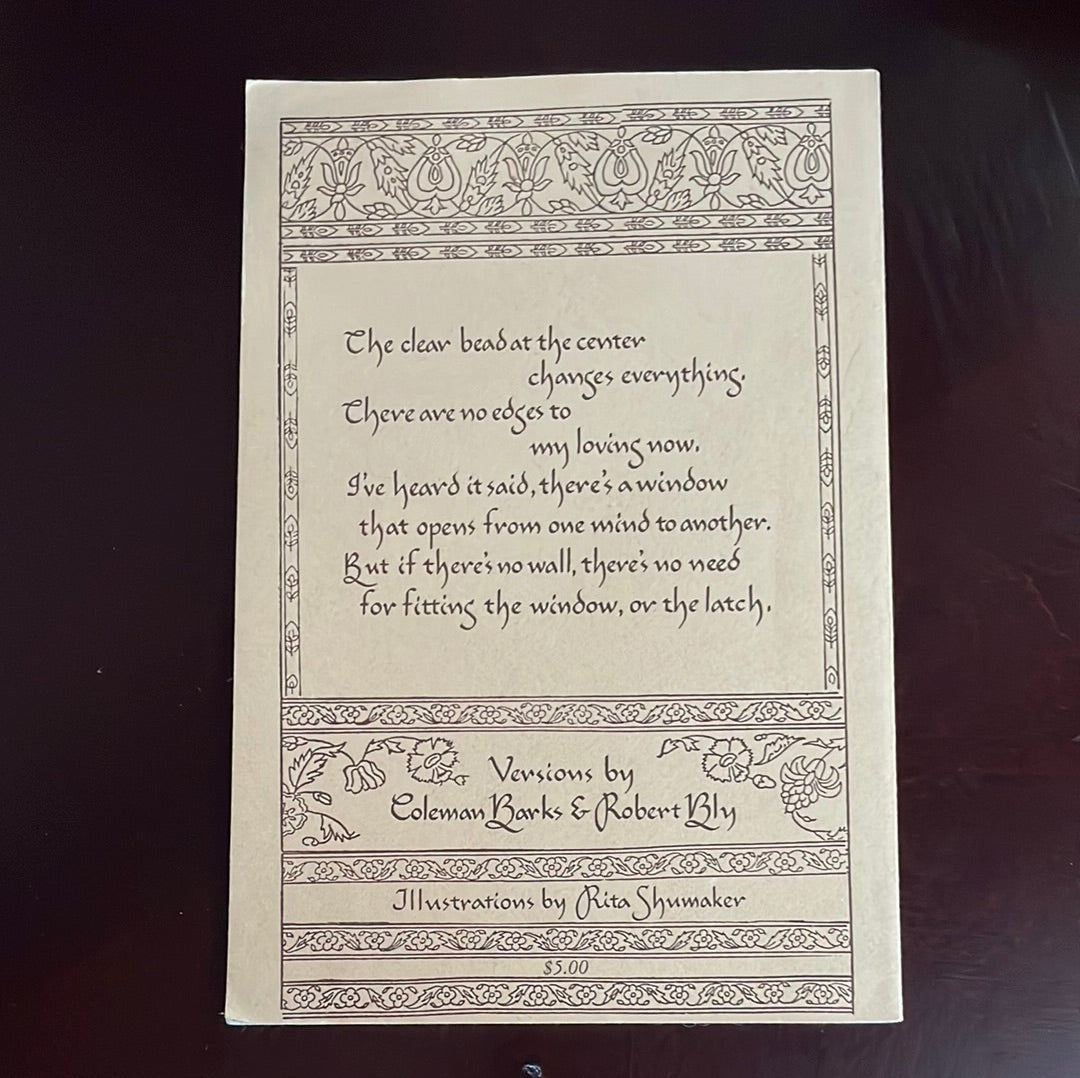 The clear bead at the center
changes everything.
There are no edges to
my loving now.
I've heard it said, there's a window
that opens from one mind to another.
But if there's no wall, there's no need
for fitting the window, or the latch.
Versions by
Coleman Barks & Robert Bly
Illustrations by Rita Shumaker
$5.00